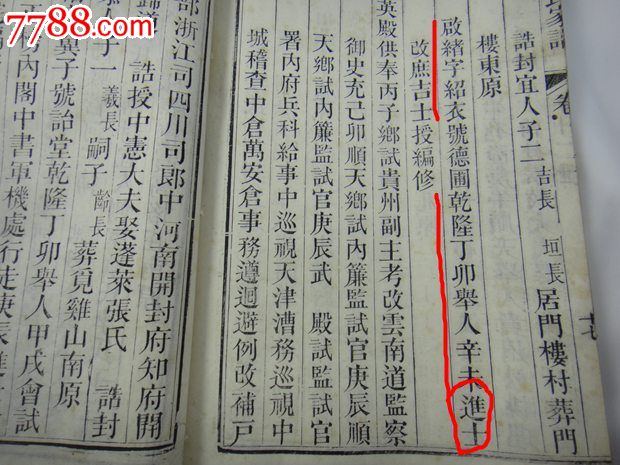 7788.com
誥封宜人子二 吉長 垣長 居門樓村葬門
樓東原
啟緒字紹衣號德圃乾隆丁卯舉人辛未進士
改庶吉士授編修
英殿供奉丙子鄉試貴州副主考改雲南道監察
御史充己卯順天鄉試內簾監試官庚辰順
天鄉試內簾監試官庚辰武 殿試監試官
署內府兵科給事中巡視天津漕務巡視中
城稽查中倉萬安倉事務遵迴避例改補戶
部浙江司四川司郎中河南開封府知府開
歸道 誥授中憲大夫娶蓬萊張氏 誥封
子一 羲長 嗣子 齡長 葬覓雞山南原
子號詒堂乾隆丁卯舉人甲戌會試
內閣中書軍機處行走庚辰進